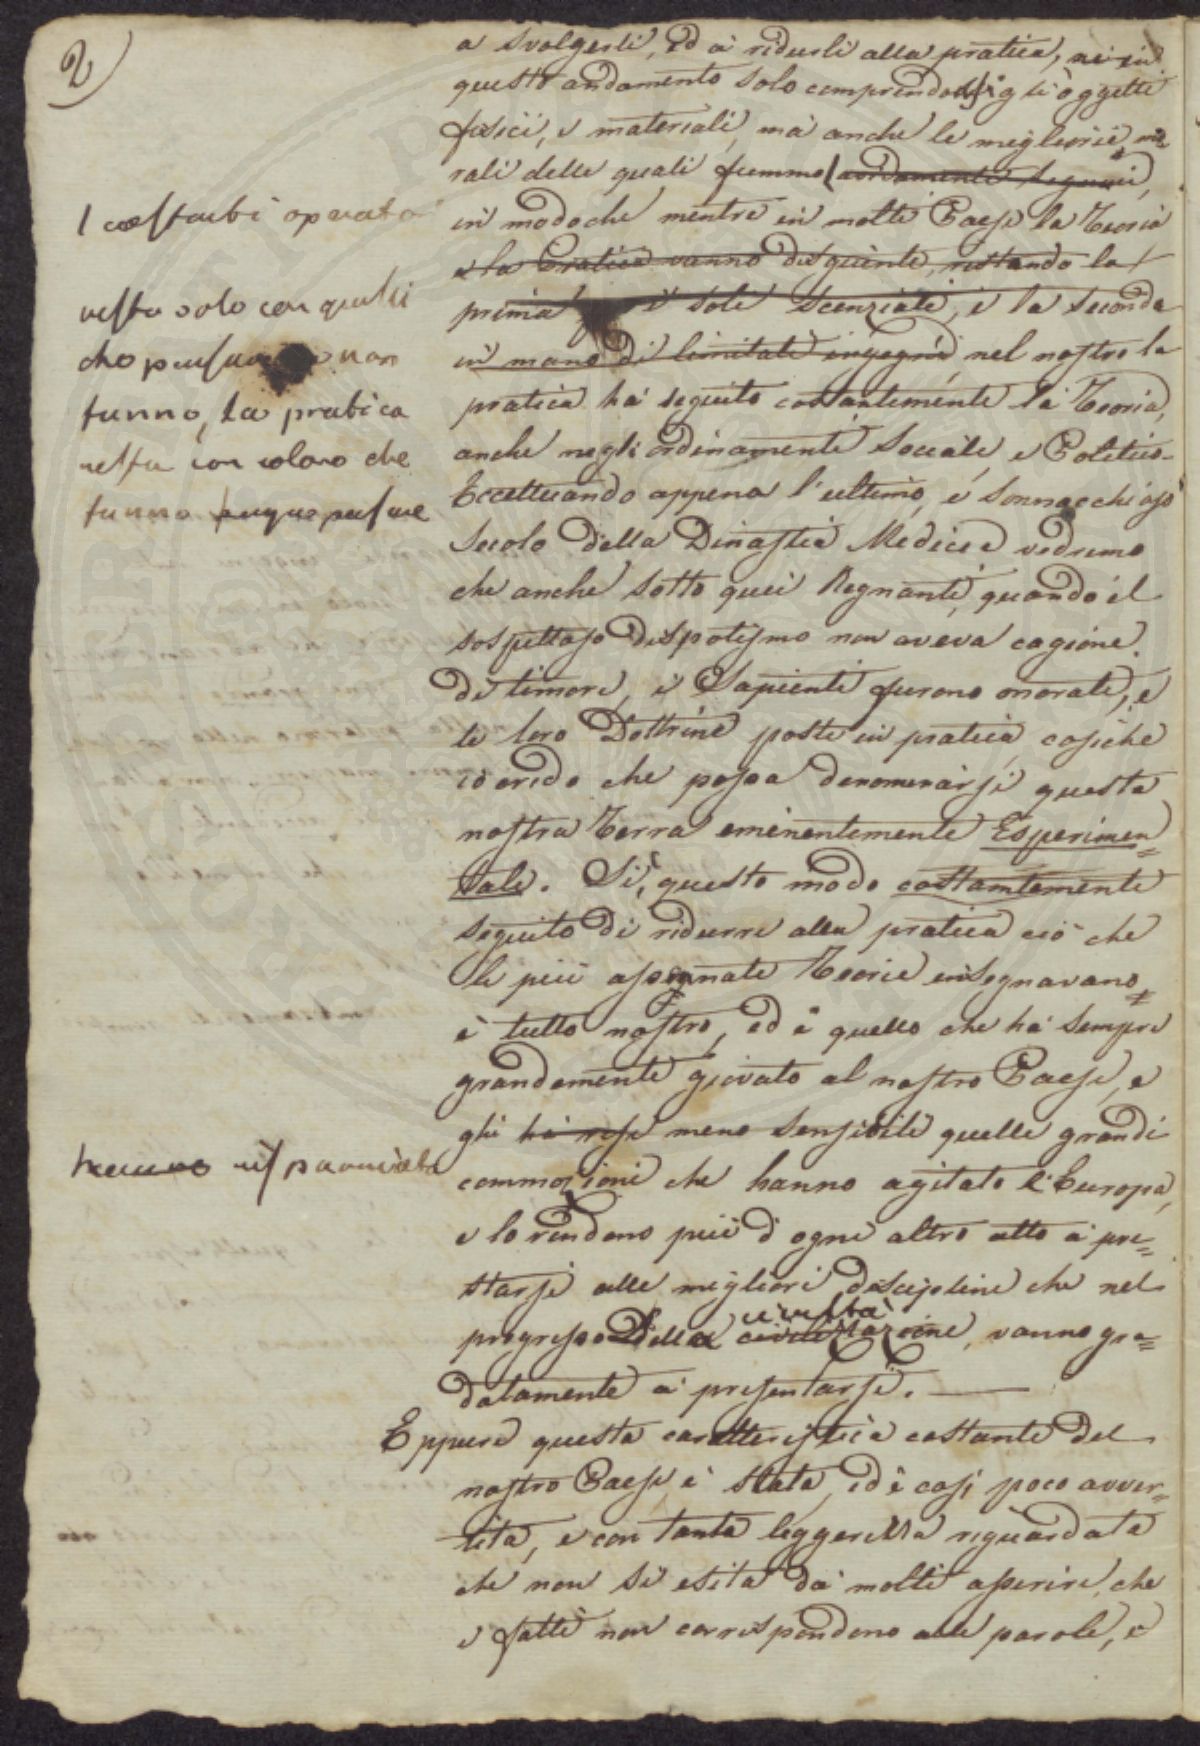 2)
a svolgerli, ed a ridurli alla pratica, nè in
questo andamento solo comprendonsi gli oggetti
fisici, e materiali, ma anche le megliorie mo
rali delle quali fummo avidamente seguaci,
l costanti operatori
in modo che mentre in molti Paesi la Teoria
e la Pratica vanno disgiunte, restando la
prima i soli scenziati, e la seconda
in mano di limitati ingegni, nel nostro la
resta solo con quelli
che pensano e non
fanno, la pratica
resta con coloro che
fanno senza pensare
pratica ha seguito costantemente la Teoria,
anche negli ordinamenti Sociale, e Politico.
Eccettuando appena l'ultimo, e sonnacchioso
Secolo della Dinastia Medicea vedremo
che anche sotto quei Regnanti, quando il
sospettoso dispotismo non aveva cagione
di timore, i Sapienti furono onorati, e
le loro Dottrine poste in pratica, cosichè
io credo che possa denominarsi questa
nostra Terra eminentemente Esperimen=
tale. Sì, questo modo costantemente
seguito di ridurre alla pratica ciò che
le più assennate Teorie insegnavano
è tutto nostro, ed è quello che ha sempre
grandemente giovato al nostro Paese, e
ghi ha rese meno sensibile quelle grandi
hanno risparmiato
commozioni che hanno agitato l'Europa,
e lo rendono più d'ogni altro atto a pre=
starsi alle migliori discipline che nel
progresso della civilizzazione, vanno gra=
civiltà
datamente a presentarsi.
Eppure questa caratteristica costante del
nostro Paese è stata, ed è così poco avver=
tita, e con tanta leggerezza riguardata
che non si esita da molti asserire, che
i fatti non corrispondono alle parole, e